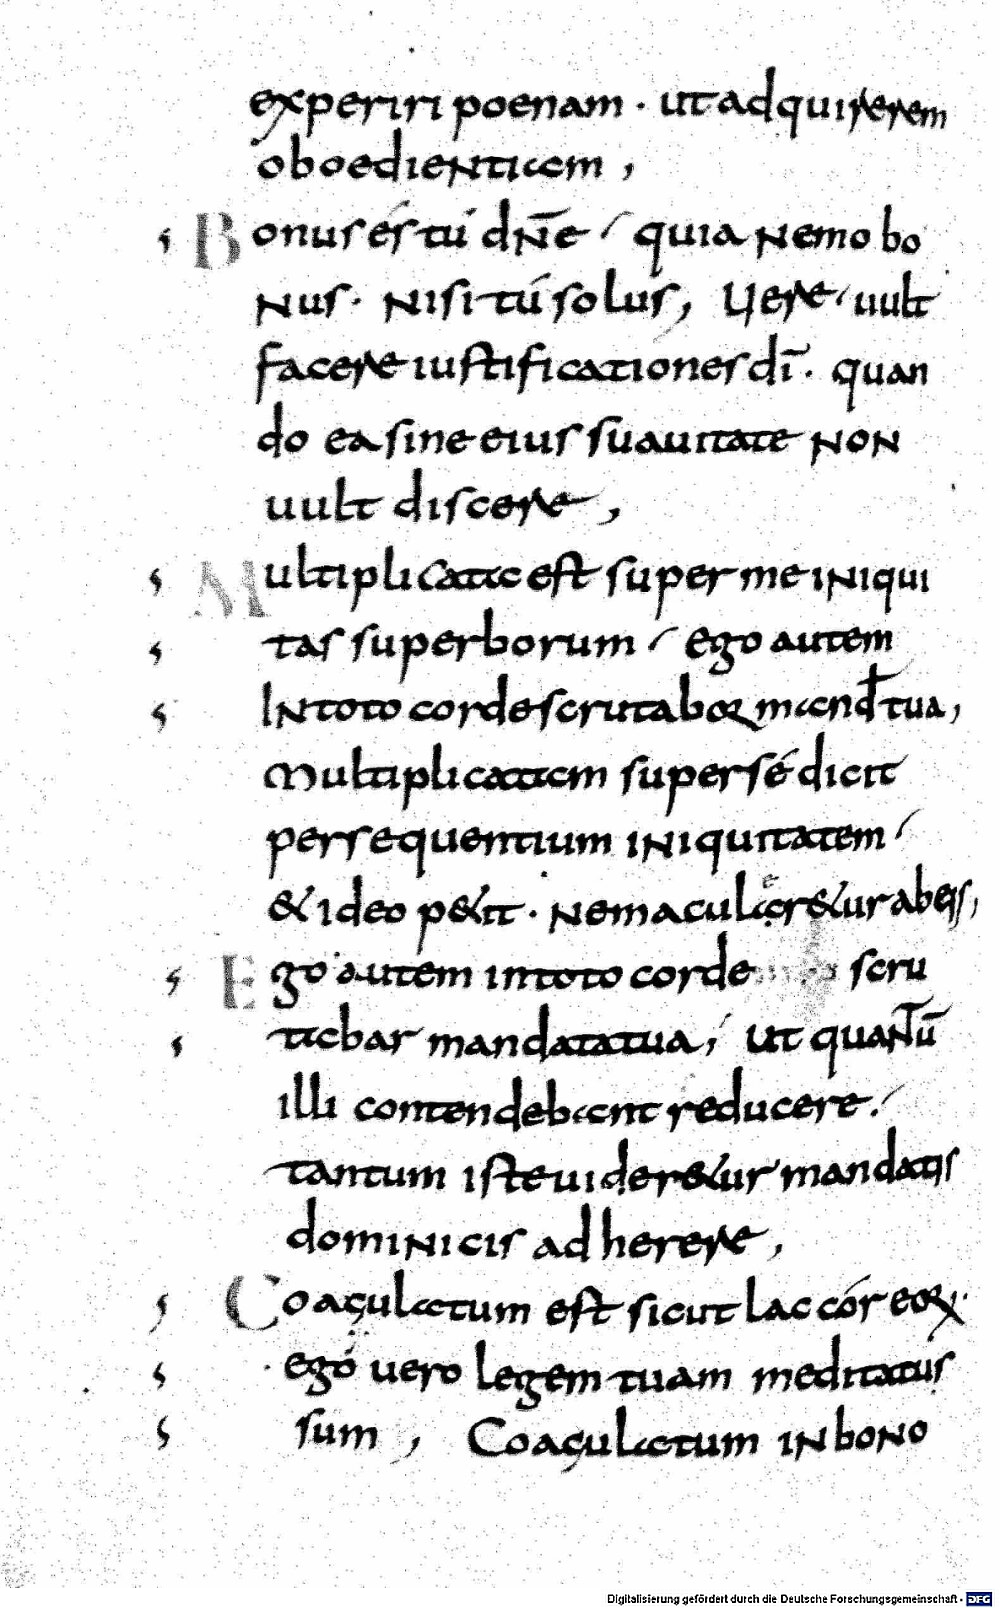 experiri poenam · ut adquirerem
oboedientiam ,
Bonus és tú dn̄e / quia nemo bo
nus · nisi tú solus, Uere / uult
facere iustificationes dī · quan
do ea sine eius suauitate non
uult discere ,
Multiplicata est super me iniqui
tas superborum / ego autem
In toto corde scrutabor mand̄ tua ,
Multiplicatam super sé dicit
persequentium iniquitatem /
& ideo p&it · ne macular&ur ab eis,
Ego autem in toto corde scru
tabar mandata tua , ut quan̄tū
illi contendebant reducere ./
tantum iste uider&ur mandatis
dominicis adherere ,
Coagulatum est sicut lac cór eorum ·
egó uero legem tuam meditatus
sum , Coagulatum in bono
Digitalisierung gefördert durch die Deutsche Forschungsgemeinschaft - DFG